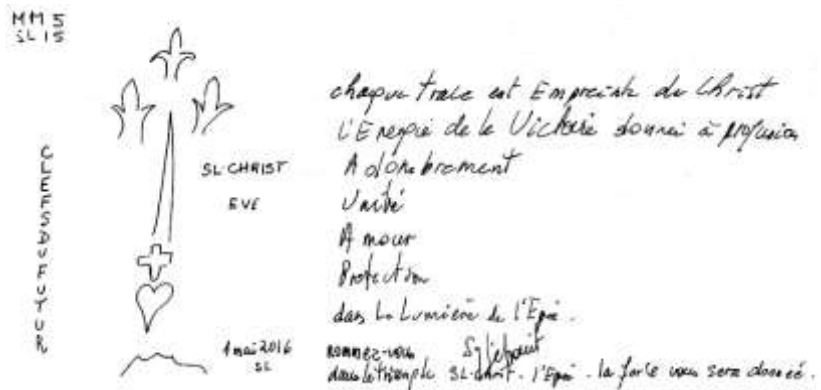 MM5
SL15
CLEFSDUFUTUR
SL-CHRIST
EVE
1 mai 2016
SL
chaque trace est Empreinte du Christ
l'Energie de la Victoire donnée à profusion
Adombrement
Unité
Amour
Protection
dans la Lumière de l'Epée.
nommez-vous
dans le triomphe SL-Christ. l'Epée. la force vous sera donnée.